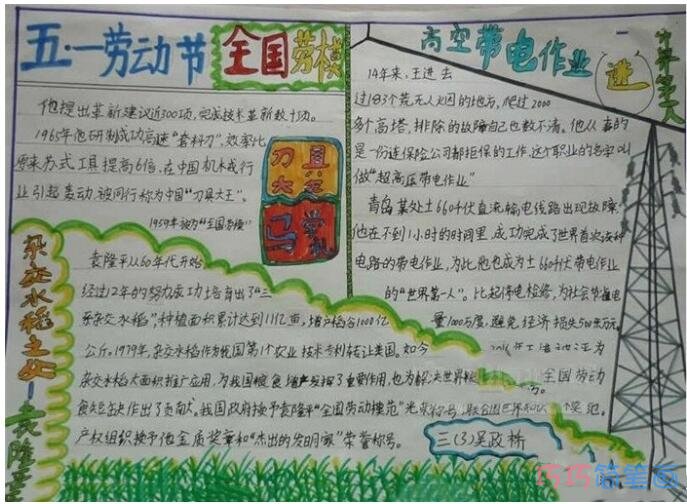 五·一劳动节
全国劳模
他提出革新建议近300项,完成技术革新数十项。
1965年他研制成功高速"套料刀",效率比
原来苏式工具提高6倍,在中国机械行
业引起轰动,被同行称为中国"刀具大王"。
1959年被为"全国劳模"
刀具大
马学礼
杂交水稻之父—袁隆平
袁隆平从60年代开始
经过12年的努力成功培育出了"三
系杂交水稻",种植面积累计达到11亿亩,增产稻谷1000亿
公斤。1979年,杂交水稻作为我国第1个农业技术专利转让美国。如今
杂交水稻大面积推广应用,为我国粮食增产发挥了重要作用,也为解决世界粮
食短缺大作出了贡献。我国政府授予袁隆平"全国劳动模范"光荣称号,联合国世界知识
产权组织授予他金质奖章和"杰出的发明家"荣誉称号。
高空带电作业
世界第一人
进
14年来,王进去
过183个荒无人烟的地方,爬过2000
多个高塔,排除的故障自己也数不清。他从事的
是一份连保险公司都拒保的工作,这个职业的名字叫
做"超高压带电作业"
青岛某处±660千伏直流输电线路出现故障
他在不到1小时的时间里,成功完成了世界首次该种
电路的带电作业,为此他也成为±660千伏带电作业
的"世界第一人"。比起停电检修,为社会节省电
量1000万度,避免经济损失500余万元。
全国劳动
三(3)吴政桥
巧巧简笔画